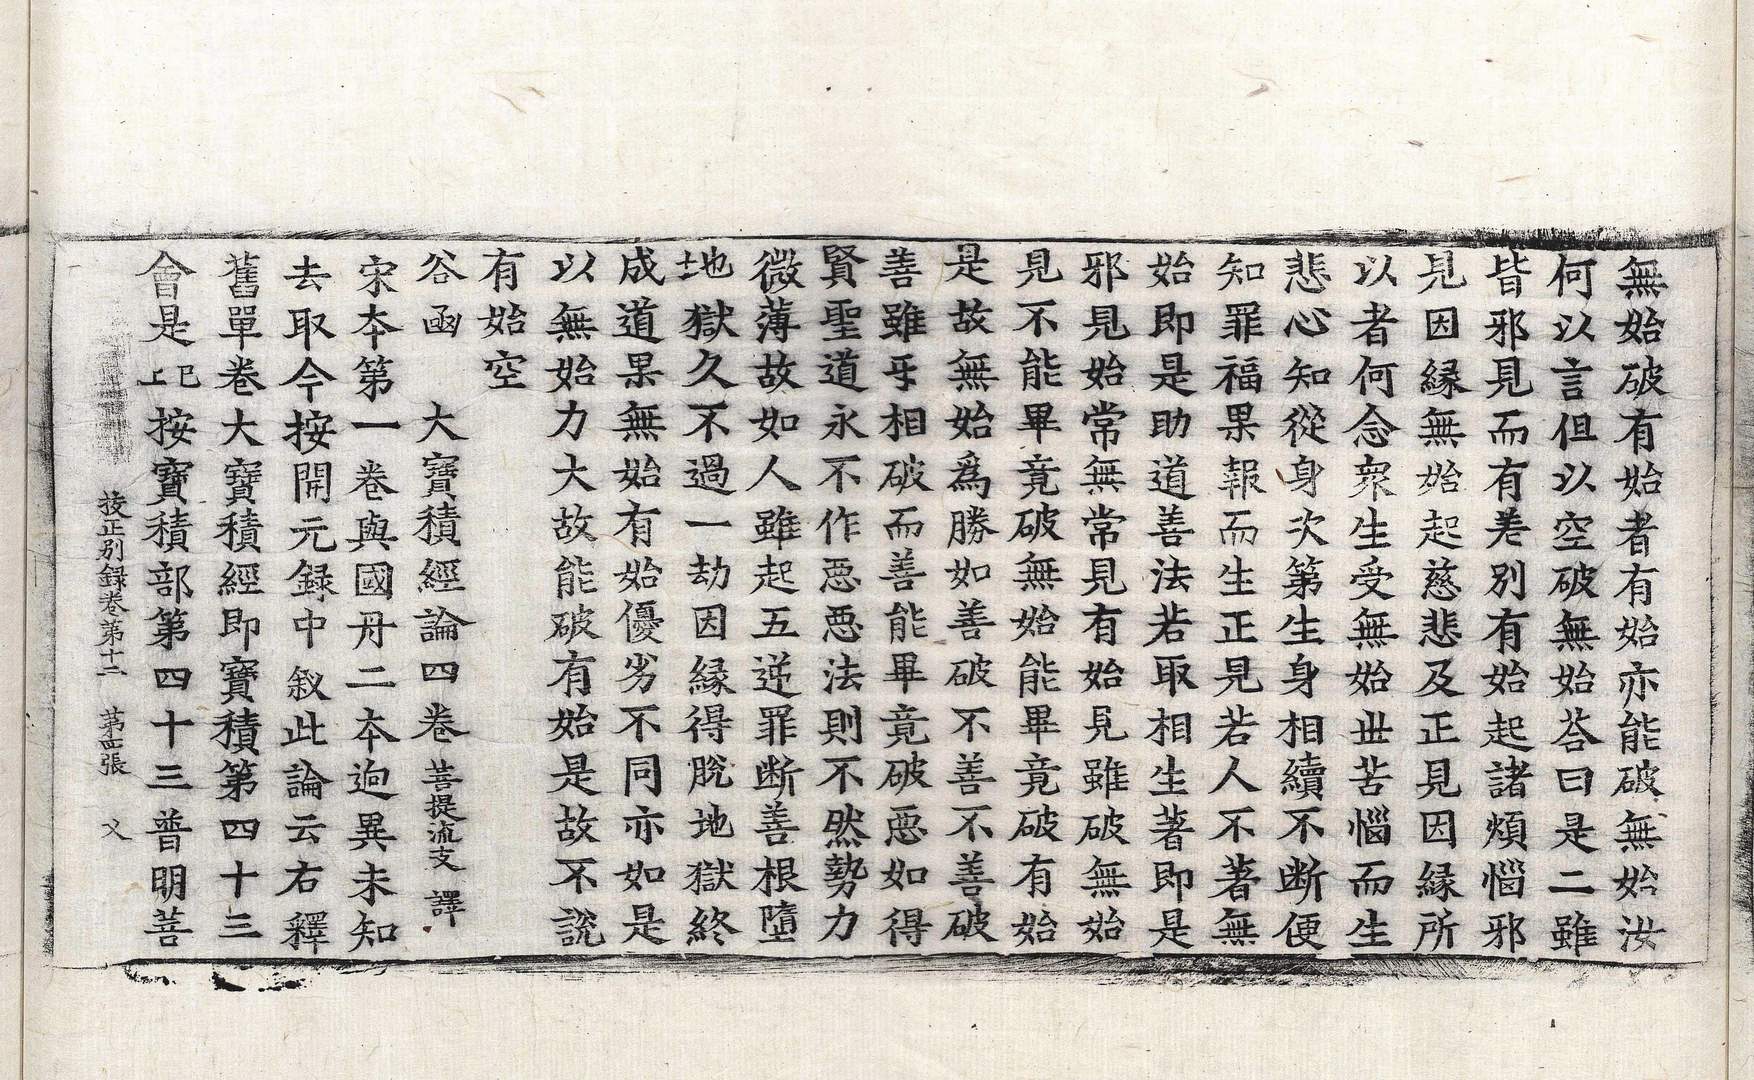 無始破有始者有始亦能破無始汝
何以言但以空破無始荅曰是二雖
皆邪見而有差別有始起諸煩惱邪
見因縁無始起慈悲及正見因縁所
以者何念衆生受無始世苦惱而生
悲心知從身次第生身相續不断便
知罪福果報而生正見若人不著無
始即是助道善法若取相生著即是
邪見始常無常見有始見雖破無始
見不能畢竟破無始能畢竟破有始
是故無始爲勝如善破不善不善破
善雖㸦相破而善能畢竟破惡如得
賢聖道永不作惡惡法則不然勢力
微薄故如人雖起五逆罪断善根墮
地獄久不過一劫因縁得脫地獄終
成道果無始有始優劣不同亦如是
以無始力大故能破有始是故不說
有始空
谷函　大寶積經論四卷　菩提流支　譯
宋本第一卷與國丹二本逈異未知
去取今按開元録中叙此論云右釋
舊單卷大寶積經即寶積第四十三
會是　已上　按寶積部第四十三普明菩
挍正別録卷第十二　第四張　乂